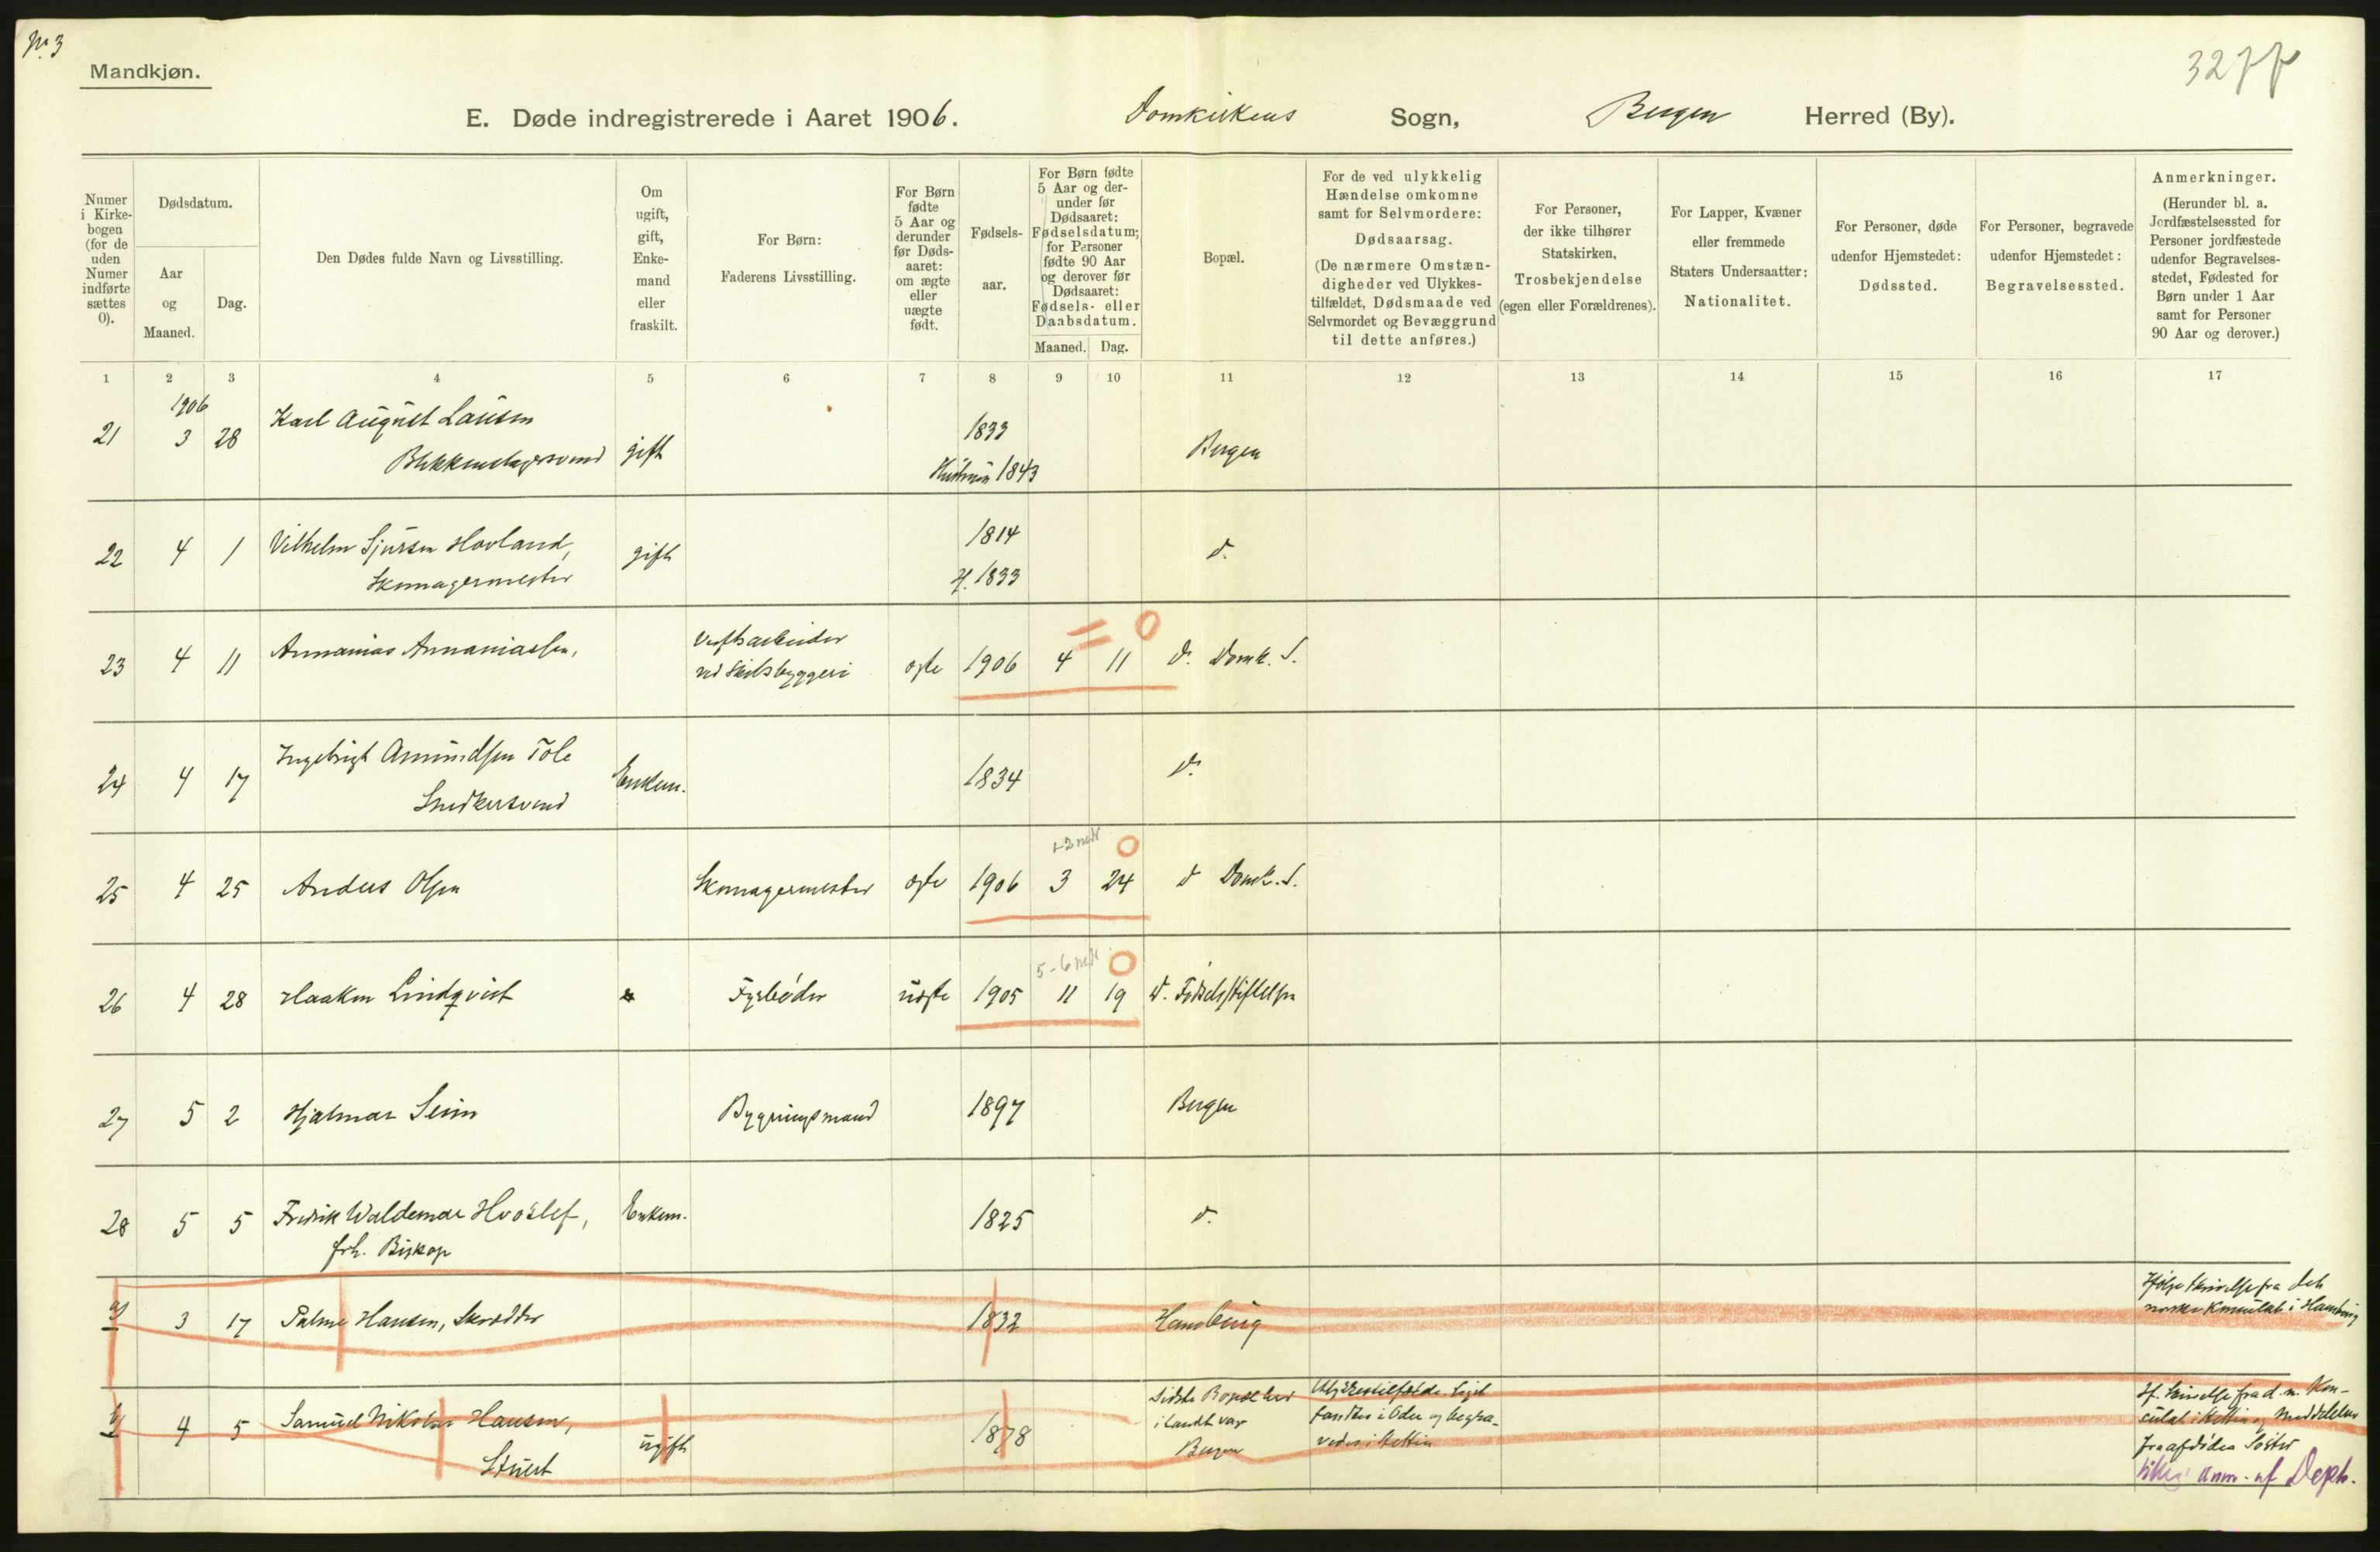 No. 3
Mandkjøn.
E. Døde indregistrerede i Aaret 1906. Domkirkens Sogn, Bergen Herred (By).
Numer i Kirkebogen (for de uden Numer indførte sættes 0).
Dødsdatum.
Aar og Maaned.
Dag.
Den Dødes fulde Navn og Livsstilling.
Om ugift, gift, Enkemand eller fraskilt.
For Børn: Faderens Livsstilling.
For Børn fødte 5 Aar og derunder før Dødsaaret: om ægte eller uægte født.
Fødselsaar.
For Børn fødte 5 Aar og derunder før Dødsaaret: Fødselsdatum; for Personer fødte 90 Aar og derover før Dødsaaret: Fødsels- eller Daabsdatum.
Maaned. Dag.
Bopæl.
For de ved ulykkelig Hændelse omkomne samt for Selvmordere: Dødsaarsag. (De nærmere Omstændigheder ved Ulykkestilfældet, Dødsmaade ved Selvmordet og Bevæggrund til dette anføres.)
For Personer, der ikke tilhører Statskirken, Trosbekjendelse (egen eller Forældrenes).
For Lapper, Kvæner eller fremmede Staters Undersaatter: Nationalitet.
For Personer, døde udenfor Hjemstedet: Dødssted.
For Personer, begravede udenfor Hjemstedet: Begravelsessted.
Anmerkninger. (Herunder bl. a. Jordfæstelsessted for Personer jordfæstede udenfor Begravelsesstedet, Fødested for Børn under 1 Aar samt for Personer 90 Aar og derover.)
1 2 3 4 5 6 7 8 9 10 11 12 13 14 15 16 17
1906
21 3 28 Karl August Lausen gift 1833 Bergen
Blikkenslagersvend Hustruen 1843
22 4 1 Vilhelm Sjursen Hovland, gift 1814 d.
Skomagermester H. 1833
23 4 11 Annanias Annaniassen, Verftsarbeider ved Skibsbyggeri ægte 1906 4 11 d. Domk. S.
= 0
24 4 17 Ingebrigt Amundsen Tole Enkem. 1834 d.
Snedkersvend
1-2 mdr 0
25 4 25 Anders Olsen Skomagermester ægte 1906 3 24 d Domk. S.
5-6 mdr 0
26 4 28 Haakon Lindqvist Fyrbøder uægte 1905 11 19 d. Fødselsstiftelsen
27 5 2 Hjalmar Seim Bygningsmand 1897 Bergen
28 5 5 Fredrik Waldemar Hvoslef, Enkem. 1825 d.
frh. Biskop
a) 3 17 Palme Hansen, Skrædder 1832 Hamburg
Ifølge Skrivelse fra det
norske Konsulat i Hamburg
b) 4 5 Samuel Nikolai Hansen, ugift 1878
Stuert
Sidste Bopæl her
i Landet var
Bergen
Ulykkestilfælde. Liget
fandtes i Oder og begra-
vedes i Stettin
If. Skrivelse fra d. n. Kon-
sulat i Stettin og Meddelelse
fra afdødes Søster
anm. af Dept.